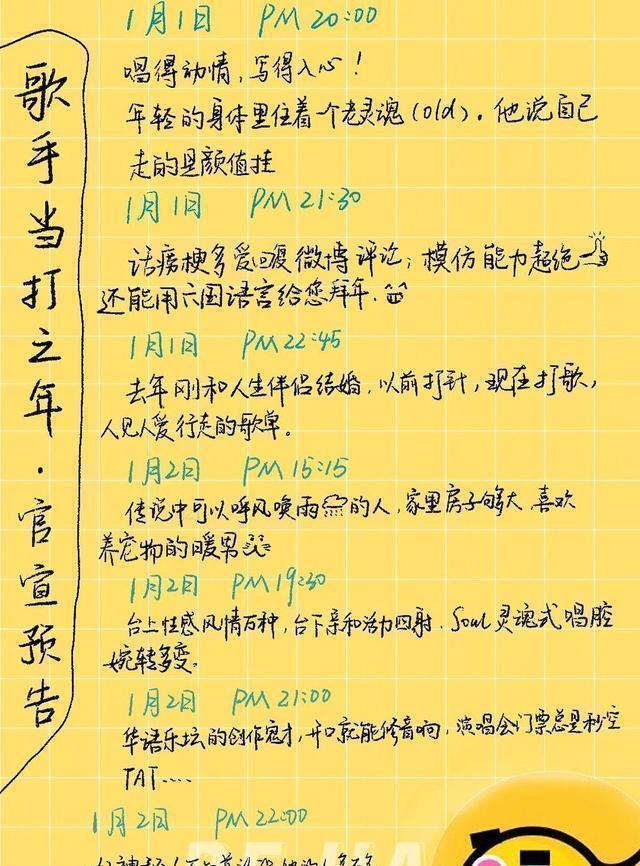 歌手当打之年·官宣预告
1月1日 PM 20:00
唱得动情，写得入心！
年轻的身体里住着一个老灵魂(old)。他说自己
走的是颜值挂
1月1日 PM 21:30
话痨梗多爱回复微博评论；模仿能力超绝
还能用六国语言给您拜年.
1月1日 PM 22:45
去年刚和人生伴侣结婚，以前打针，现在打歌，
人见人爱行走的歌单。
1月2日 PM 15:15
传说中可以呼风唤雨的人，家里房子够大，喜欢
养宠物的暖男
1月2日 PM 19:30
台上性感风情万种，台下亲和活力四射.Soul灵魂式唱腔
婉转多变。
1月2日 PM 21:00
华语乐坛的创作鬼才，开口就能修音响，演唱会门票总是秒空
TAT....
1月2日 PM 22:00